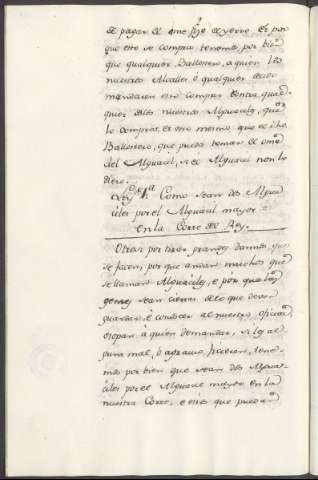 de pagar el ome fijo e yerro. Et por
que esto se compla tenemos por bien
que qualquier Ballestero, a quien los
nuestros Alcalles o qualquier dellos
mandaren esto complir contra qual
quier de los nuestros Alguaciles, que
lo cumplan, et esto mesmo que el dicho
Ballestero, que pueda tomar el ome
del Alguacil, si el Alguacil non lo
diere.
Ley Como sean dos Algua
ciles por el Alguacil mayor
en la Corte del Rey.
Otrosi por tirar grandes daños, que
se facen, por que andan muchos que
se llaman Alguaciles, e por que las
gentes sean ciertas de lo que deven
guardar, e conoscer al nuestro oficial,
e sepan a quien demandar, si algu
puna mal, o agravio ficieren, tene
mos por bien que sean dos Algua
ciles por el Alguacil mayor en la
nuestra Corte, e estos que puedan